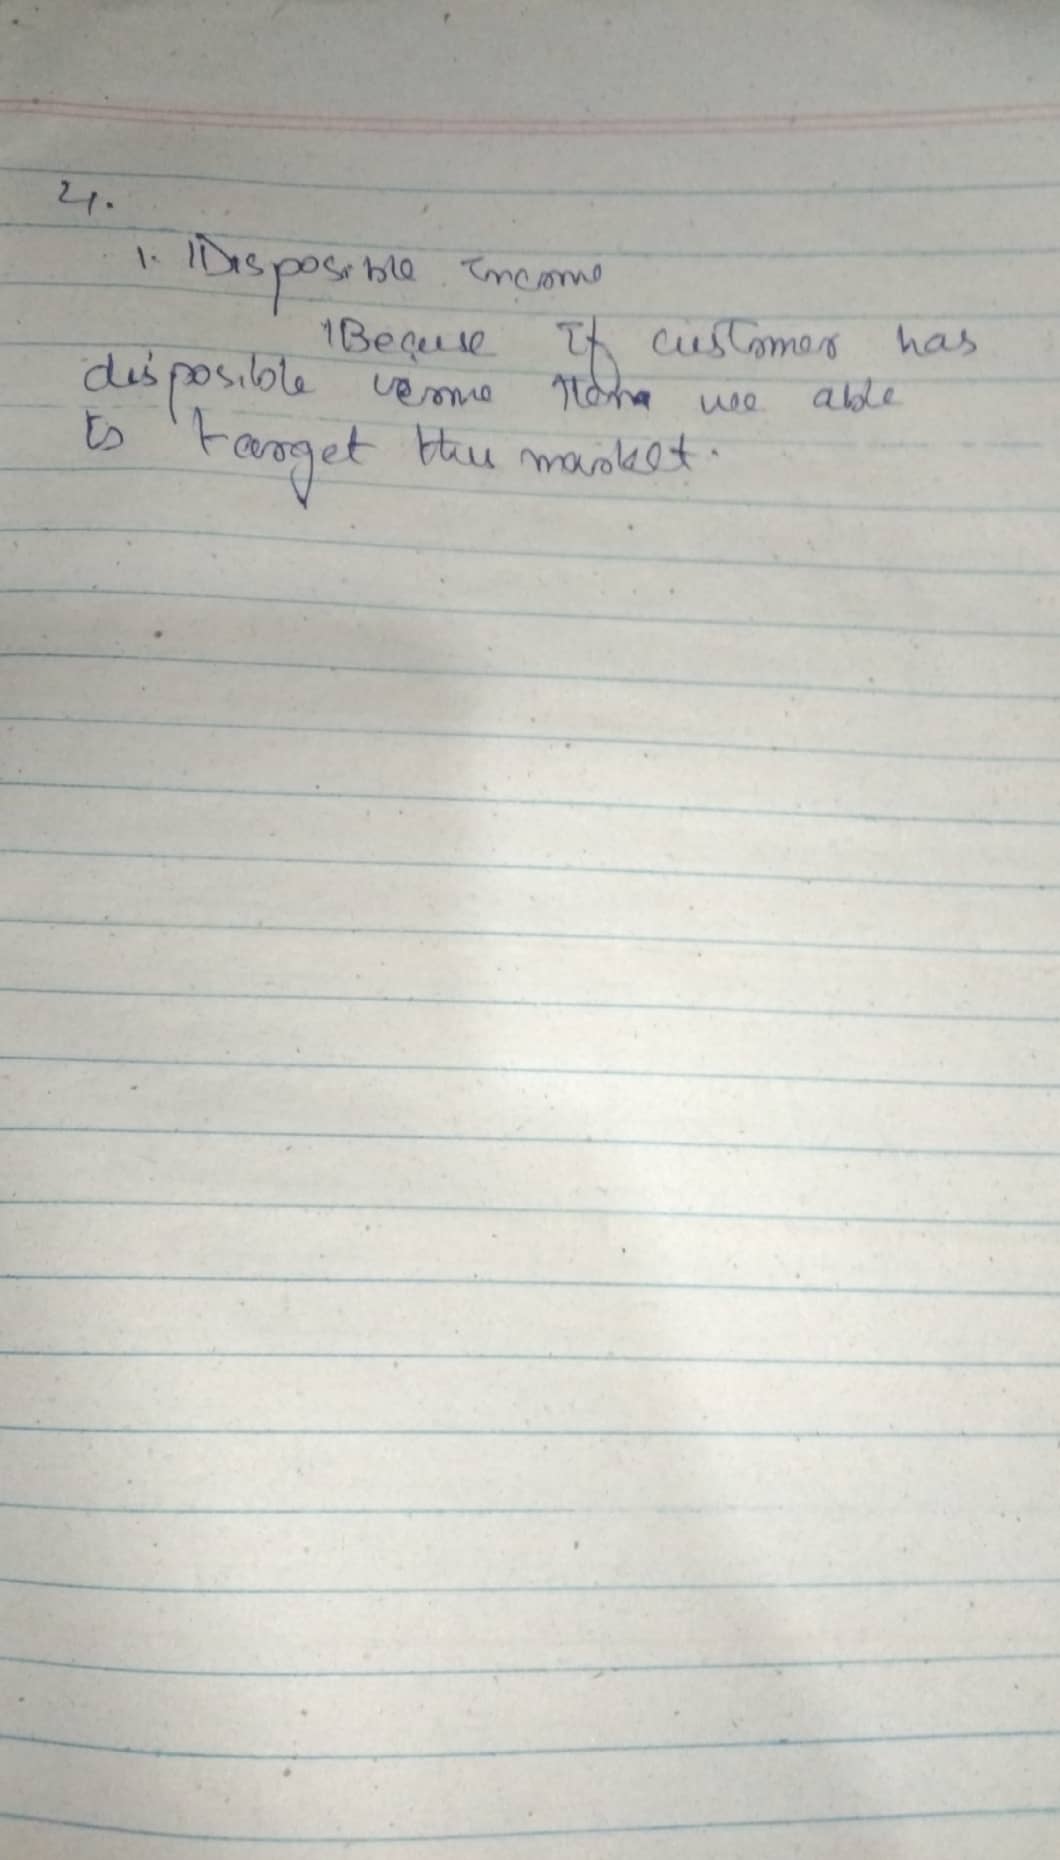 21.
1. Disposible Income
Becuse If customer has
disposible then we able
to target this market.